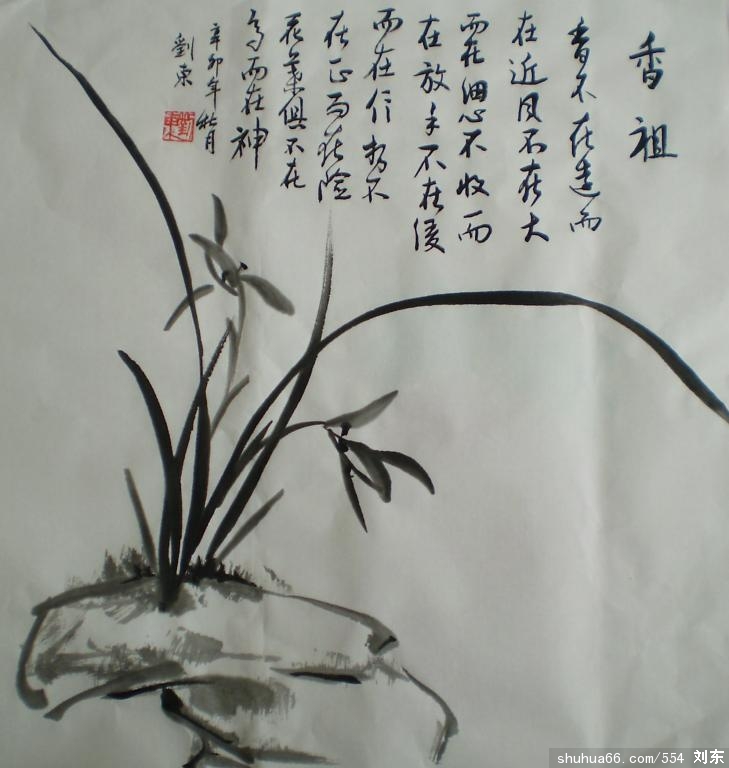 香祖
香不在遠而
在近貝不在大
而在細心不收而
在放手不在後
而在信 不
在正而在險
花葉俱不在
而在神
辛卯年秋月
劉東
劉東
shuhua66.com/554 刘东